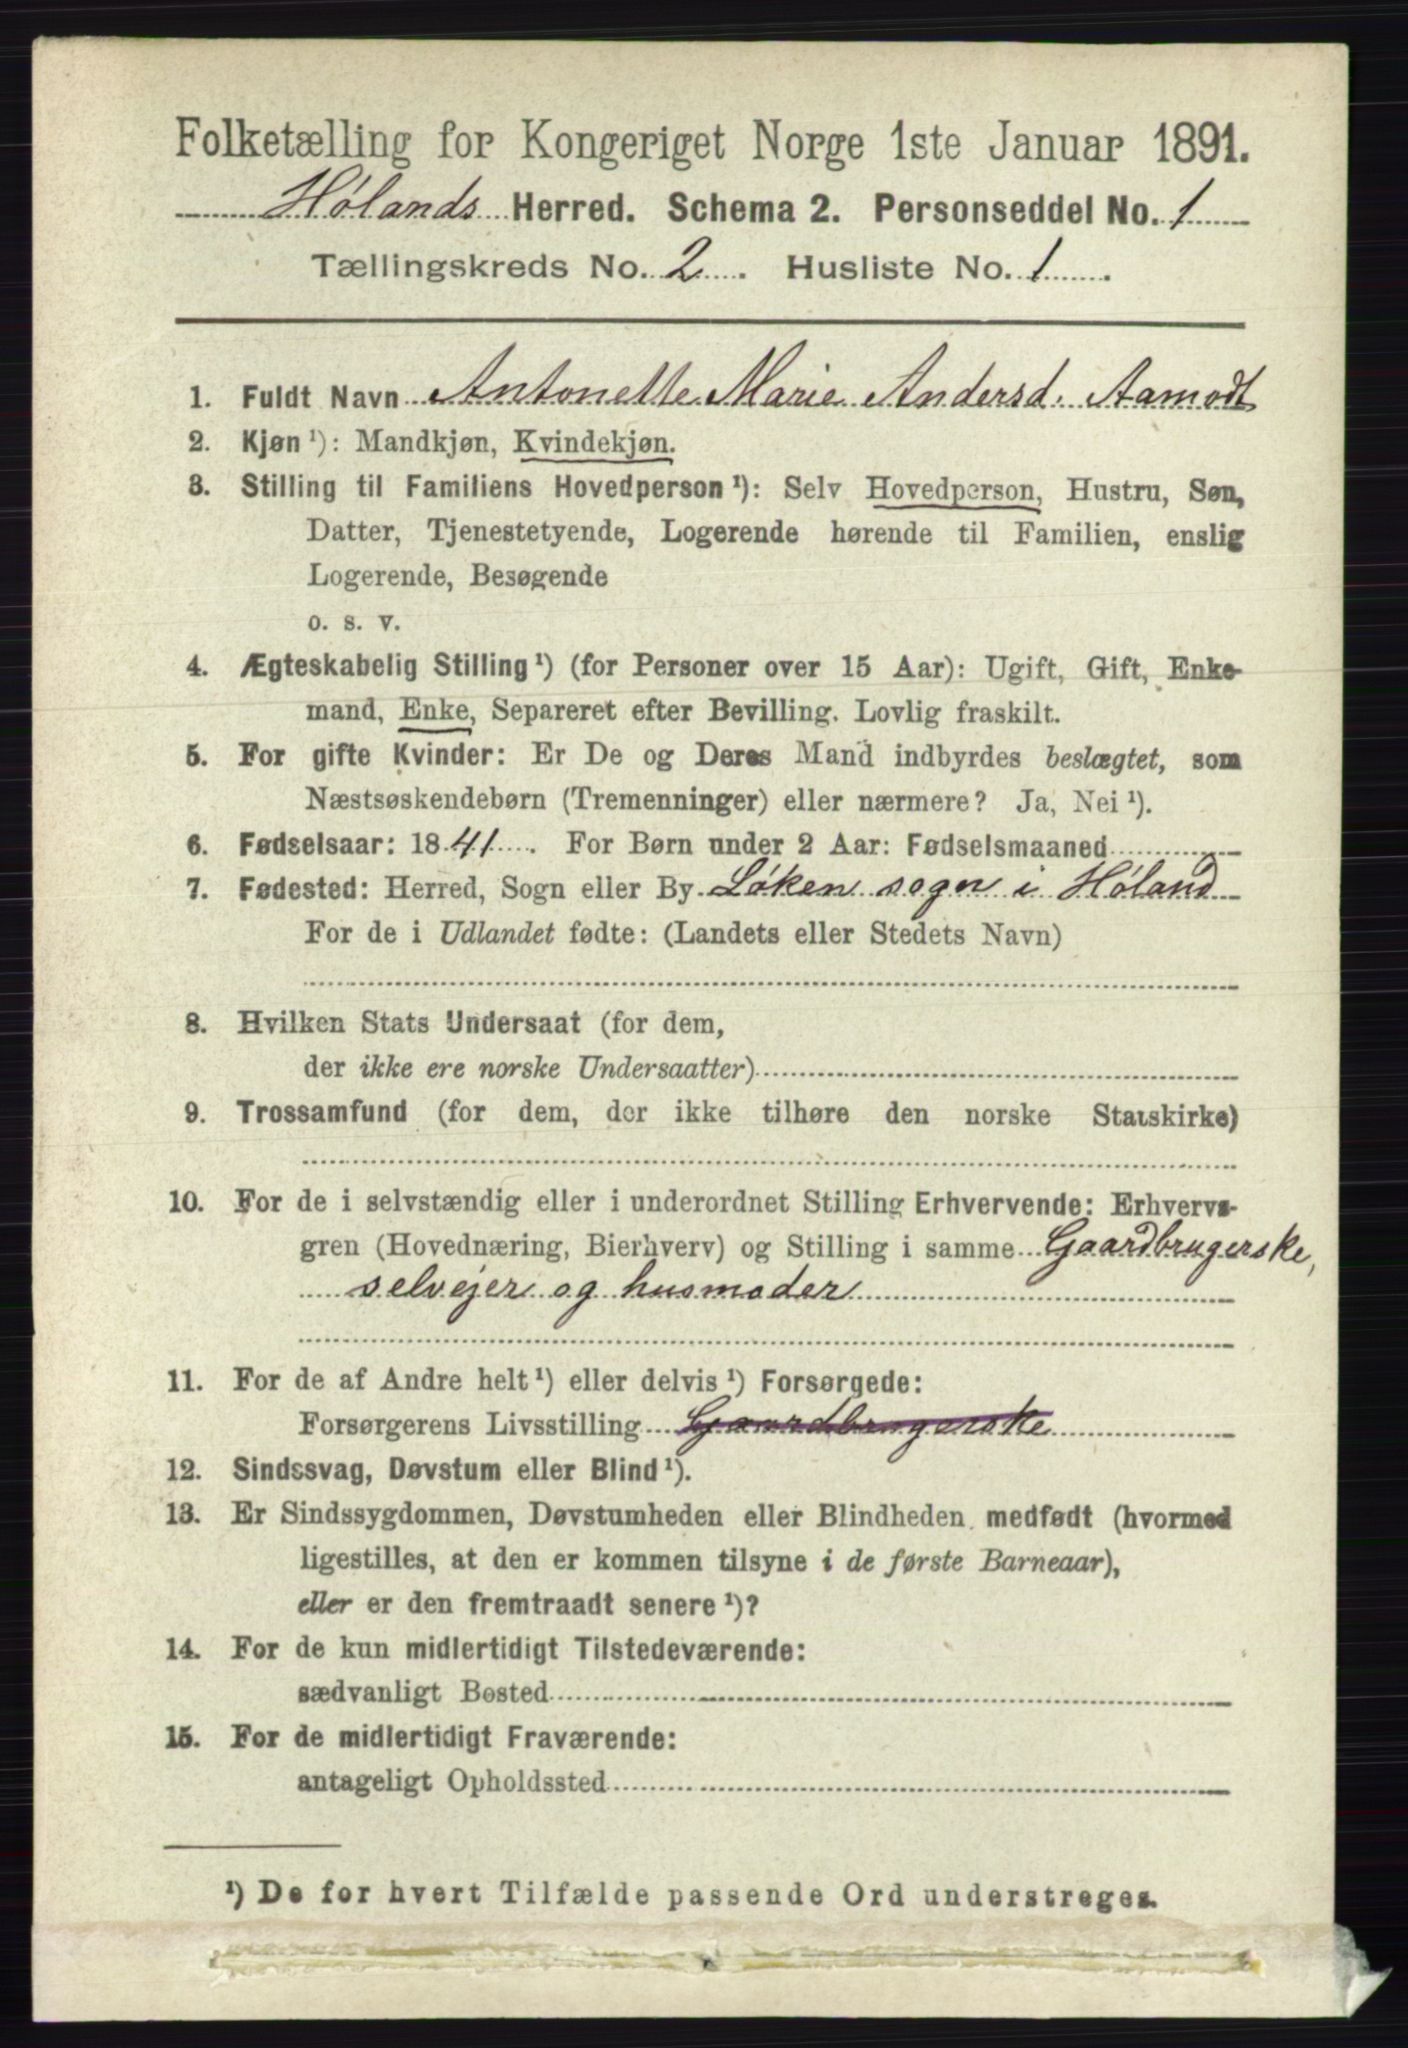 Folketælling for Kongeriget Norge 1ste Januar 1891.
Hølands Herred. Schema 2. Personseddel No. 1
Tællingskreds No. 2. Husliste No. 1.
1. Fuldt Navn Antonette Marie Andersd. Aamodt
2. Kjøn ¹): Mandkjøn, Kvindekjøn.
3. Stilling til Familiens Hovedperson ¹): Selv Hovedperson, Hustru, Søn,
Datter, Tjenestetyende, Logerende hørende til Familien, enslig
Logerende, Besøgende
o. s. v.
4. Ægteskabelig Stilling ¹) (for Personer over 15 Aar): Ugift, Gift, Enke-
mand, Enke, Separeret efter Bevilling. Lovlig fraskilt.
5. For gifte Kvinder: Er De og Deres Mand indbyrdes beslægtet, som
Næstsøskendebørn (Tremenninger) eller nærmere? Ja, Nei ¹).
6. Fødselsaar: 1841. For Børn under 2 Aar: Fødselsmaaned
7. Fødested: Herred, Sogn eller By Løken sogn i Høland
For de i Udlandet fødte: (Landets eller Stedets Navn)
8. Hvilken Stats Undersaat (for dem,
der ikke ere norske Undersaatter)
9. Trossamfund (for dem, der ikke tilhøre den norske Statskirke)
10. For de i selvstændig eller i underordnet Stilling Erhvervende: Erhvervs-
gren (Hovednæring, Bierhverv) og Stilling i samme Gaardbrugerske,
selvejer og husmoder
11. For de af Andre helt ¹) eller delvis ¹) Forsørgede:
Forsørgerens Livsstilling Gaardbrugerske
12. Sindssvag, Døvstum eller Blind ¹).
13. Er Sindssygdommen, Døvstumheden eller Blindheden medfødt (hvormed
ligestilles, at den er kommen tilsyne i de første Barneaar),
eller er den fremtraadt senere ¹)?
14. For de kun midlertidigt Tilstedeværende:
sædvanligt Bosted
15. For de midlertidigt Fraværende:
antageligt Opholdssted
¹) De for hvert Tilfælde passende Ord understreges.